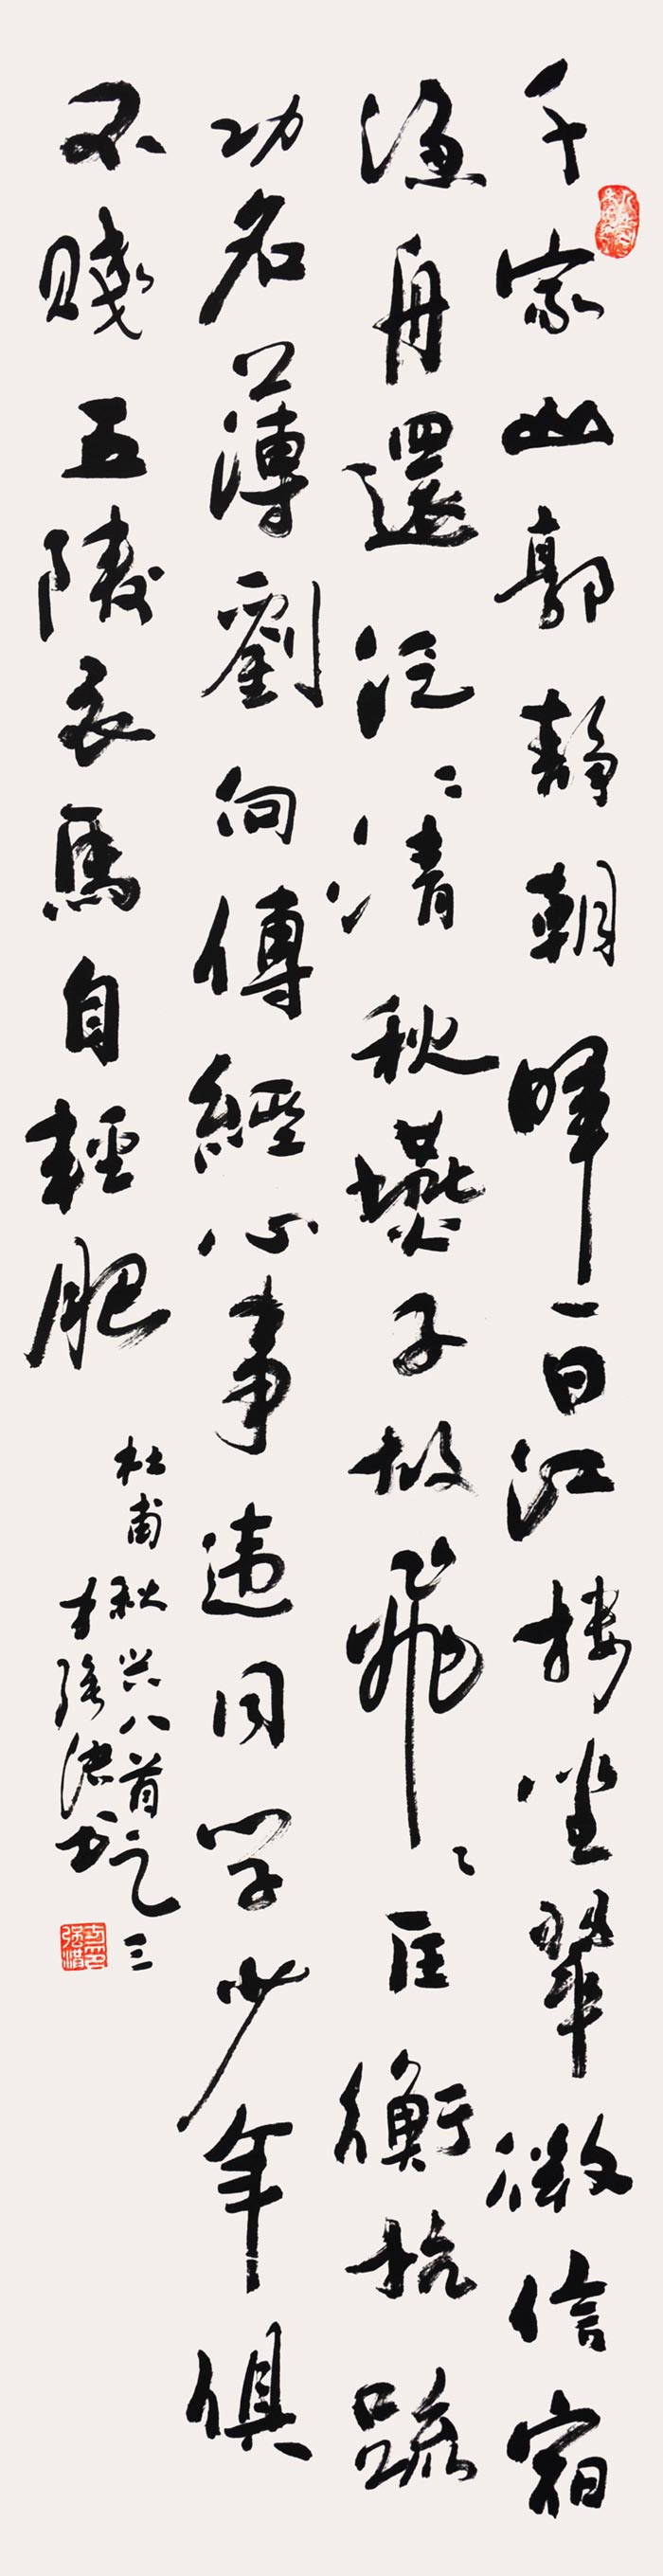 千家山郭靜朝暉一日江樓坐翠微信宿
漁舟還泛〻清秋燕子故飛〻匡衡抗疏
功名薄劉向傳經心事违同学少年俱
不賤五陵衣馬自輕肥
杜甫秋兴八首之三
书